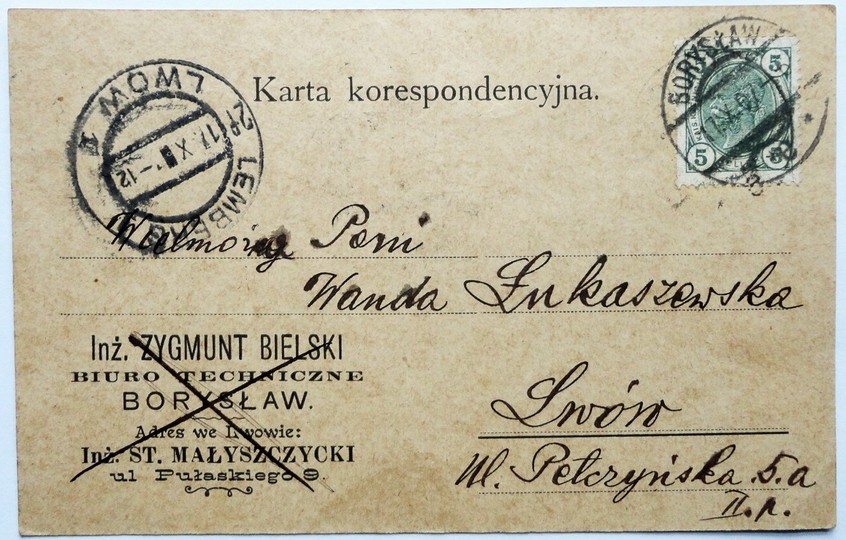 Karta korespondencyjna.
BORYSŁAW
5 5
5 5
LWÓW 1
LEMBERG
17.X
-12
Wielmożny Pani
Wanda Łukaszewska
Inż. ZYGMUNT BIELSKI
BIURO TECHNICZNE
BORYSŁAW.
Adres we Lwowie:
Inż. ST. MAŁYSZCZYCKI
ul Pułaskiego 9.
Lwów
Ul. Pełczyńska 5.a
II.p.